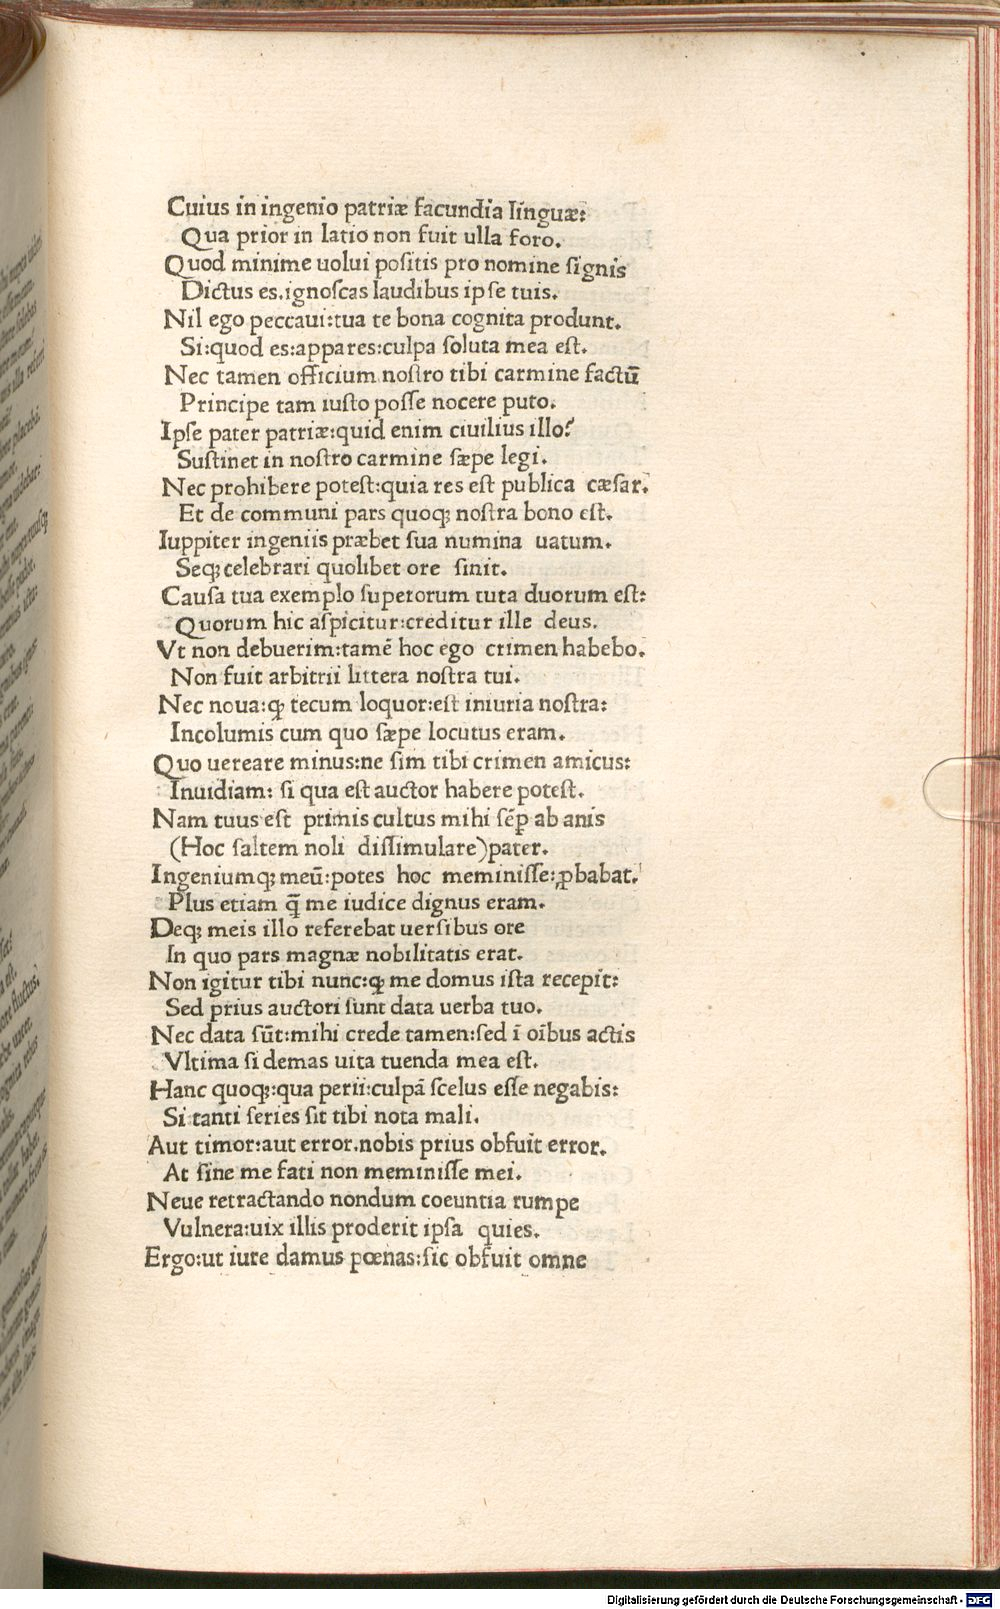 Cuius in ingenio patriæ facundia linguæ:
Qua prior in latio non fuit ulla foro.
Quod minime uolui positis pro nomine signis
Dictus es.ignoscas laudibus ipse tuis.
Nil ego peccaui:tua te bona cognita produnt.
Si:quod es:appares:culpa soluta mea est.
Nec tamen officium nostro tibi carmine factū
Principe tam iusto posse nocere puto.
Ipse pater patriæ:quid enim ciuilius illo?
Sustinet in nostro carmine sæpe legi.
Nec prohibere potest:quia res est publica cæsar.
Et de communi pars quoq; nostra bono est.
Iuppiter ingeniis præbet sua numina uatum.
Seq; celebrari quolibet ore sinit.
Causa tua exemplo superorum tuta duorum est:
Quorum hic aspicitur:creditur ille deus.
Vt non debuerim:tamē hoc ego crimen habebo.
Non fuit arbitrii littera nostra tui.
Nec noua:ꝙ tecum loquor:est iniuria nostra:
Incolumis cum quo sæpe locutus eram.
Quo uereare minus:ne sim tibi crimen amicus:
Inuidiam: si qua est auctor habere potest.
Nam tuus est primis cultus mihi sēp ab anis
(Hoc saltem noli dissimulare)pater.
Ingeniumq; meū:potes hoc meminisse:ꝓbabat.
Plus etiam q̄ me iudice dignus eram.
Deq; meis illo referebat uersibus ore
In quo pars magnæ nobilitatis erat.
Non igitur tibi nunc:ꝙ me domus ista recepit:
Sed prius auctori sunt data uerba tuo.
Nec data sūt:mihi crede tamen:sed ī oībus actis
Vltima si demas uita tuenda mea est.
Hanc quoq;:qua perii:culpā scelus esse negabis:
Si tanti series sit tibi nota mali.
Aut timor:aut error.nobis prius obfuit error.
At sine me fati non meminisse mei.
Neue retractando nondum coeuntia rumpe
Vulnera:uix illis proderit ipsa quies.
Ergo:ut iure damus pœnas:sic obfuit omne
Digitalisierung gefördert durch die Deutsche Forschungsgemeinschaft - DFG